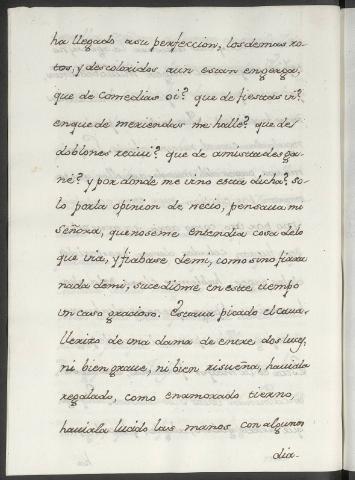 ha llegado a su perfeccion, los demas ro-
tos, y descoloridos aun estan en gerga,
que de comedias oi? que de fiestas vi?
en que de meriendas me halle? que de
doblones recivi? que de amistades ga-
nè? y por donde me vino esta dicha? so-
lo por la opinion de necio, pensava mi
señora, que no se me entendia cosa de lo
que via, y fiabase de mi, como si no fiara
nada de mi, sucediome en este tiempo
un caso gracioso. Estava picado el cava-
llerizo de una dama de entre dos luces,
ni bien grave, ni bien risueña, haviala
regalado, como enamorado tierno,
haviala lucido las manos con algunos
dia-